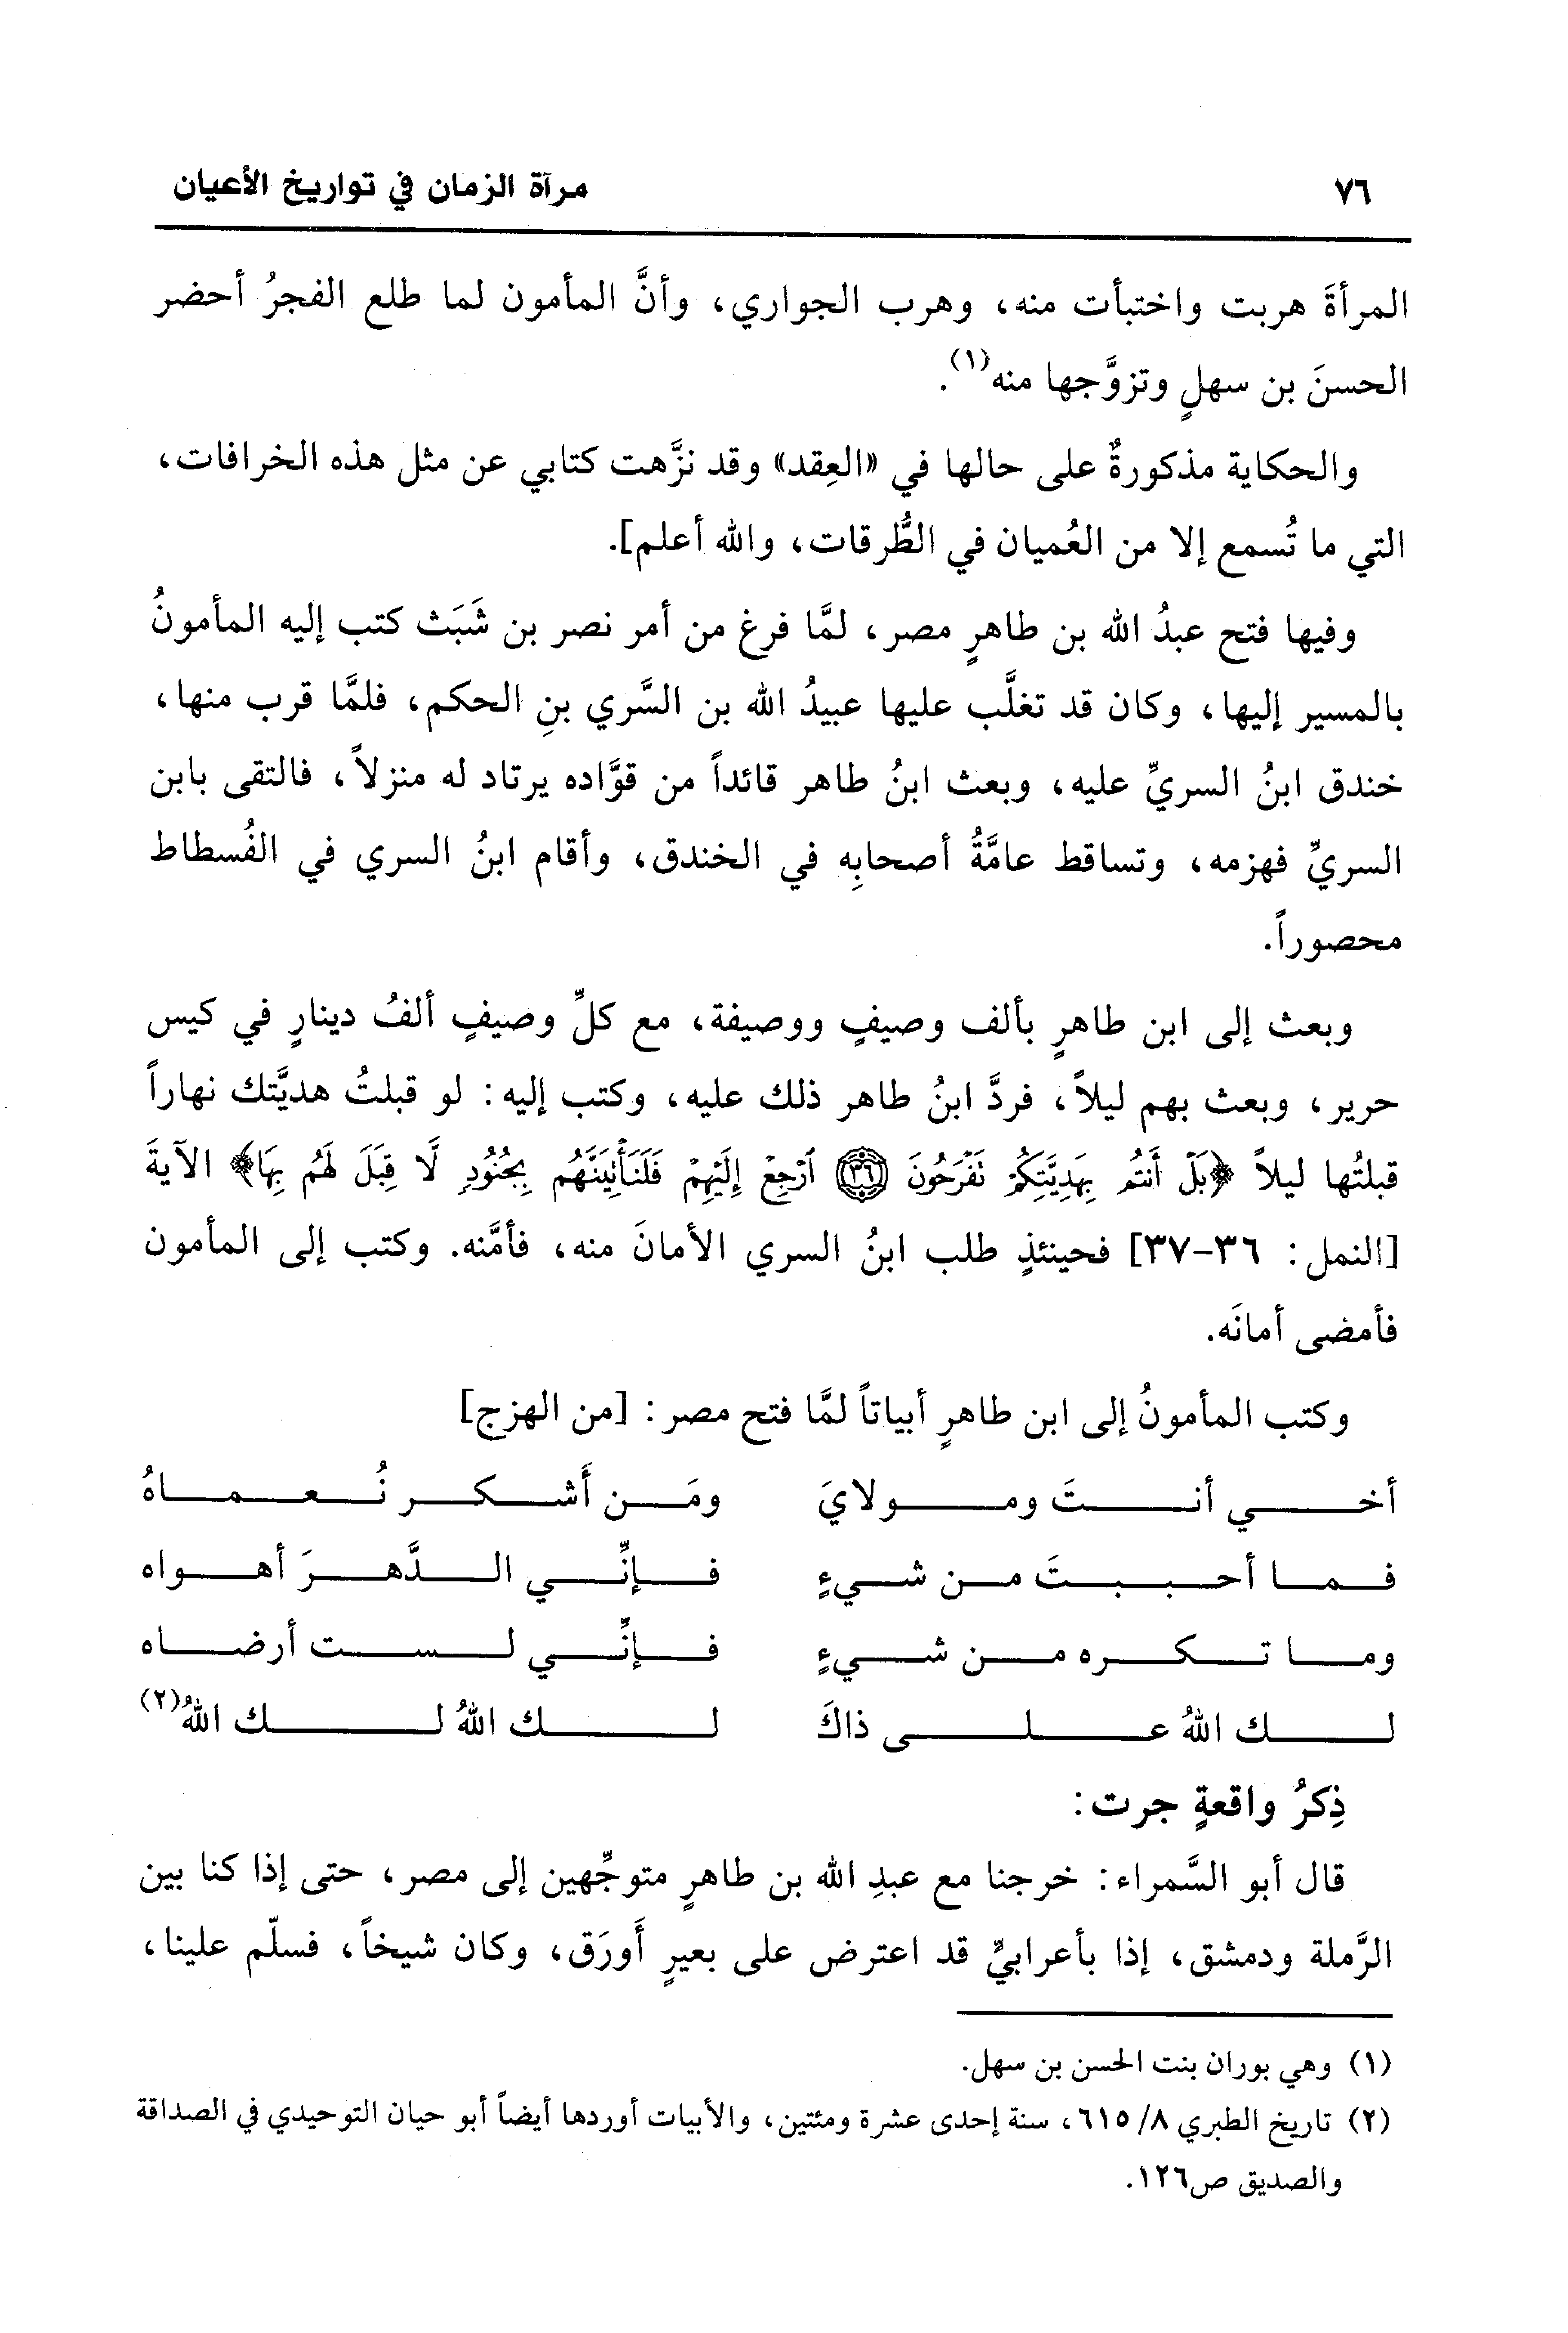 ٧٦ مرآة الزمان في تواريخ الأعيان
المرأةَ هربت واختبأت منه، وهرب الجواري، وأنَّ المأمون لما طلع الفجرُ أحضر
الحسنَ بن سهلٍ وتزوَّجها منه(١).
والحكاية مذكورةٌ على حالها في «العِقد» وقد نزَّهت كتابي عن مثل هذه الخرافات،
التي ما تُسمع إلا من العُميان في الطُّرقات، والله أعلم].
وفيها فتح عبدُ الله بن طاهرٍ مصر، لمَّا فرغ من أمر نصر بن شَبَث كتب إليه المأمونُ
بالمسير إليها، وكان قد تغلَّب عليها عبيدُ الله بن السَّري بنِ الحكم، فلمَّا قرب منها،
خندق ابنُ السريِّ عليه، وبعث ابنُ طاهر قائداً من قوَّاده يرتاد له منزلاً، فالتقى بابن
السريِّ فهزمه، وتساقط عامَّةُ أصحابِه في الخندق، وأقام ابنُ السري في الفُسطاط
محصوراً.
وبعث إلى ابن طاهرٍ بألف وصيفٍ ووصيفة، مع كلِّ وصيفٍ ألفُ دينارٍ في كيس
حرير، وبعث بهم ليلاً، فردَّ ابنُ طاهر ذلك عليه، وكتب إليه: لو قبلتُ هديَّتك نهاراً
قبلتُها ليلاً ﴿بَلْ أَنتُم بِهَدِيَّتِكُمْ تَفْرَحُونَ ۝٣٦ ٱرْجِعْ إِلَيْهِمْ فَلَنَأْتِيَنَّهُم بِجُنُودٍ لَّا قِبَلَ لَهُم بِهَا﴾ الآيةَ
[النمل: ٣٦-٣٧] فحينئذٍ طلب ابنُ السري الأمانَ منه، فأمَّنه. وكتب إلى المأمون
فأمضى أمانَه.
وكتب المأمونُ إلى ابن طاهرٍ أبياتاً لمَّا فتح مصر: [من الهزج]
أخي أنتَ ومولايَ ومَن أَشكر نُعماهُ
فما أحببتَ من شيءٍ فإنِّي الدَّهرَ أهواه
وما تكره من شيءٍ فإنِّي لست أرضاه
لك اللهُ على ذاكَ لك اللهُ لك اللهُ(٢)
ذِكرُ واقعةٍ جرت:
قال أبو السَّمراء: خرجنا مع عبدِ الله بن طاهرٍ متوجِّهين إلى مصر، حتى إذا كنا بين
الرَّملة ودمشق، إذا بأعرابيٍّ قد اعترض على بعيرٍ أَورَق، وكان شيخاً، فسلّم علينا،
(١) وهي بوران بنت الحسن بن سهل.
(٢) تاريخ الطبري ٨/ ٦١٥، سنة إحدى عشرة ومئتين، والأبيات أوردها أيضاً أبو حيان التوحيدي في الصداقة
والصديق ص١٢٦.